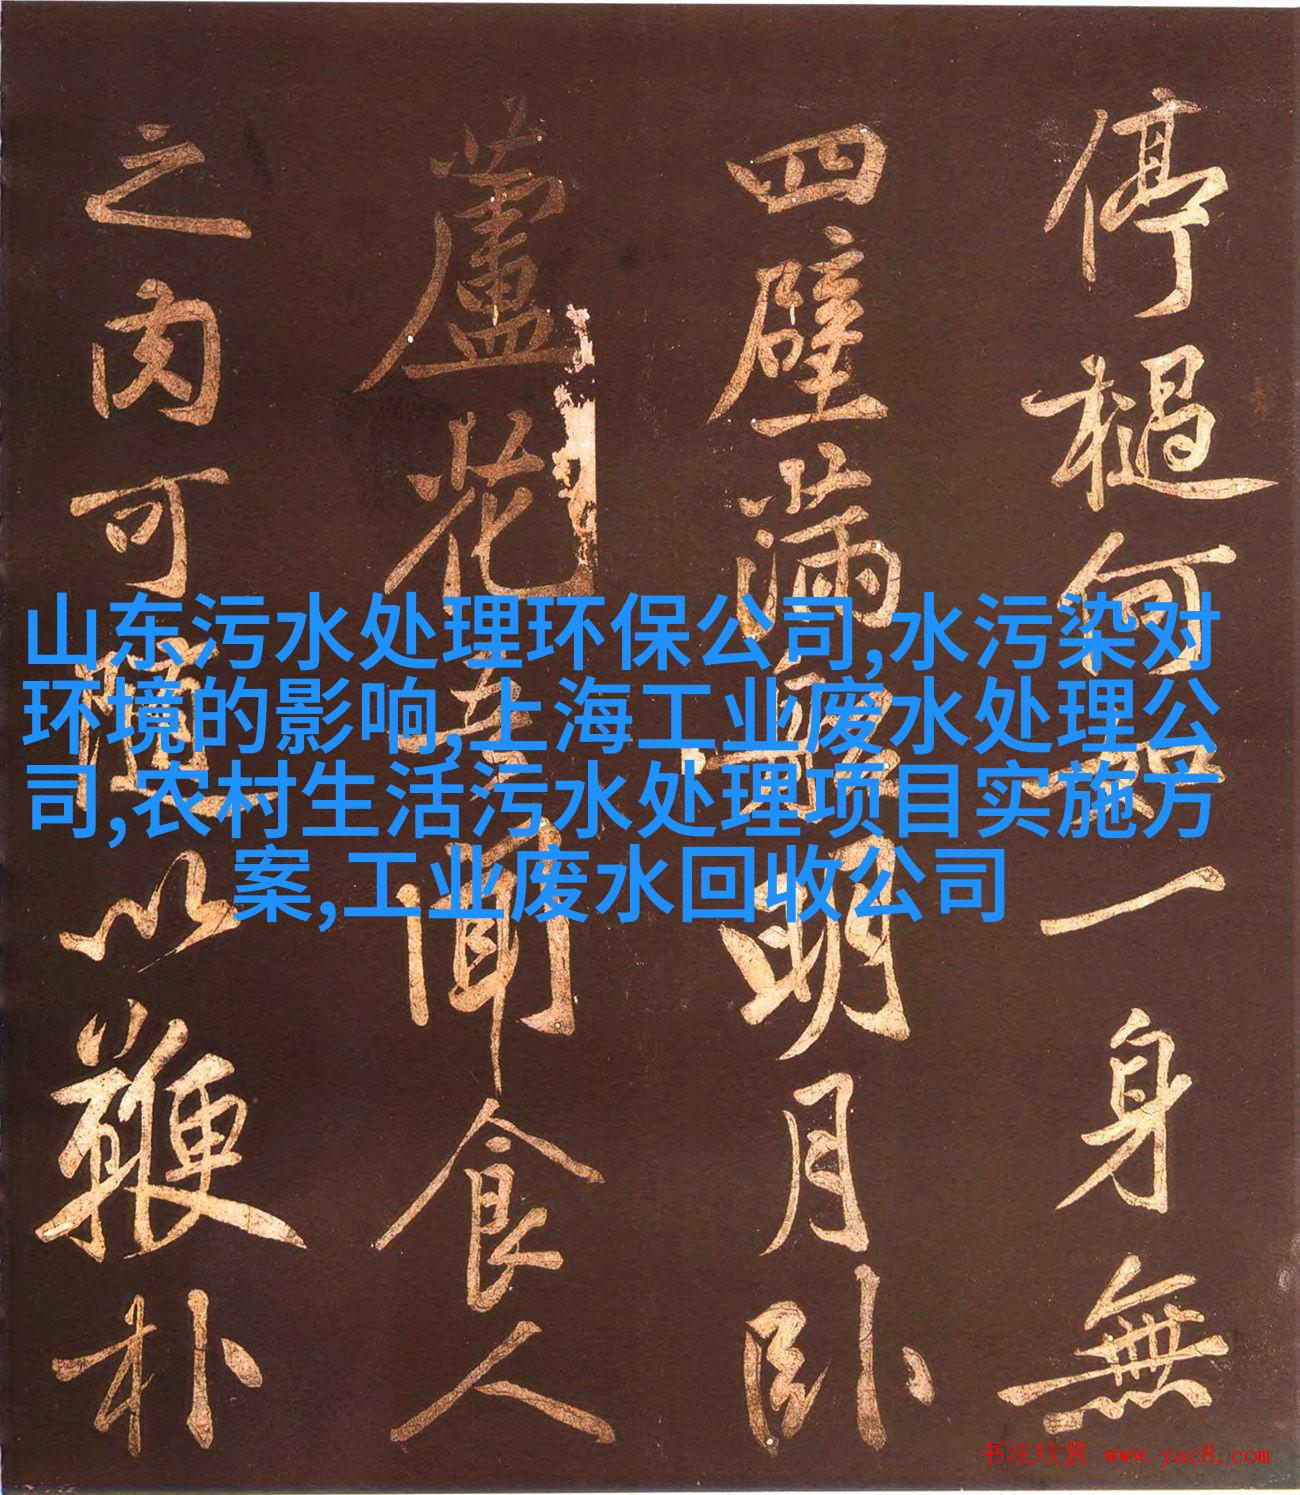 停檛何一身無
四壁滿明月卧
蘆花吾聞食人
之肉可隨以鞭朴
山东污水处理环保公司,水污染对
环境的影响,上海工业废水处理公
司,农村生活污水处理项目实施方
案,工业废水回收公司
书法欣赏 www.yac8.com